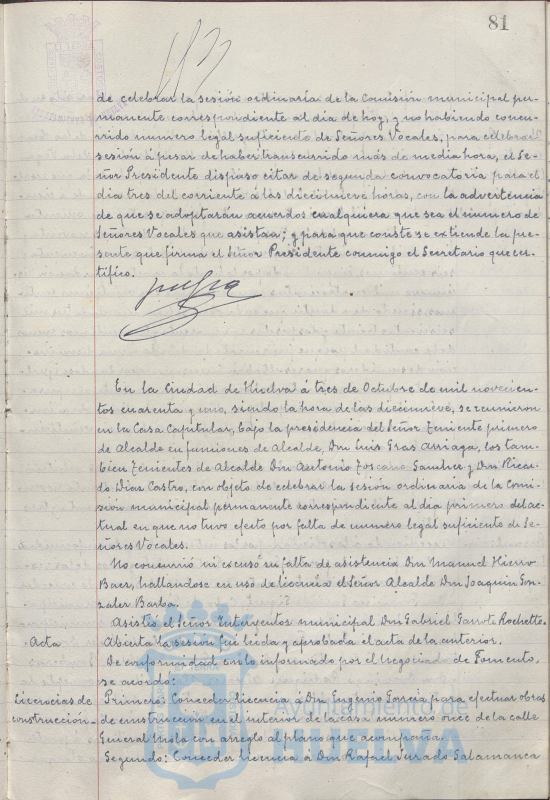 81
de celebrar la sesión ordinaria de la Comisión municipal per-
manente correspondiente al dia de hoy, y no habiendo concu-
rrido numero legal suficiente de Señores Vocales, para celebrar
sesión á pesar de haber transcurrido más de media hora, el Se-
ñor Presidente dispuso citar de segunda convocatoria para el
dia tres del corriente á las diecinueve horas, con la advertencia
de que se adoptarán acuerdos cualquiera que sea el número de
Señores Vocales que asistan; y para que conste se extiende la pre-
sente que firma el Señor Presidente conmigo el Secretario que cer-
tifico.
En la Ciudad de Huelva á tres de Octubre de mil novecien-
tos cuarenta y uno, siendo la hora de las diecinueve, se reunieron
en la Casa Capitular, bajo la presidencia del Señor Teniente primero
de Alcalde en funciones de Alcalde, Don Luis Gras Arriaga, los tam-
bien Tenientes de Alcalde Don Antonio Toscano Sanchez y Don Ricar-
do Dias Castro, con objeto de celebrar la sesión ordinaria de la Comi-
sión municipal permanente correspondiente al dia primero del ac-
tual en que no tuvo efecto por falta de número legal suficiente de Se-
ñores Vocales.
No concurrió ni excusó su falta de asistencia Don Manuel Hierro
Baez, hallandose en uso de licencia el Señor Alcalde Don Joaquin Gon-
zalez Barba.
Asistió el Señor Interventor municipal Don Gabriel Garrote Rochette.
Acta Abierta la sesión fué leida y aprobada el acta de la anterior.
De conformidad con lo informado por el Negociado de Fomento,
se acordó:
Licencias de Primero: Conceder licencia á Don Eugenio Gorria para efectuar obras
construcción de construccion en el interior de la casa numero once de la calle
General Mola con arreglo al plano que acompaña.
Segundo: Conceder licencia á Don Rafael Jurado Salamanca
Ayuntamiento de
HUELVA